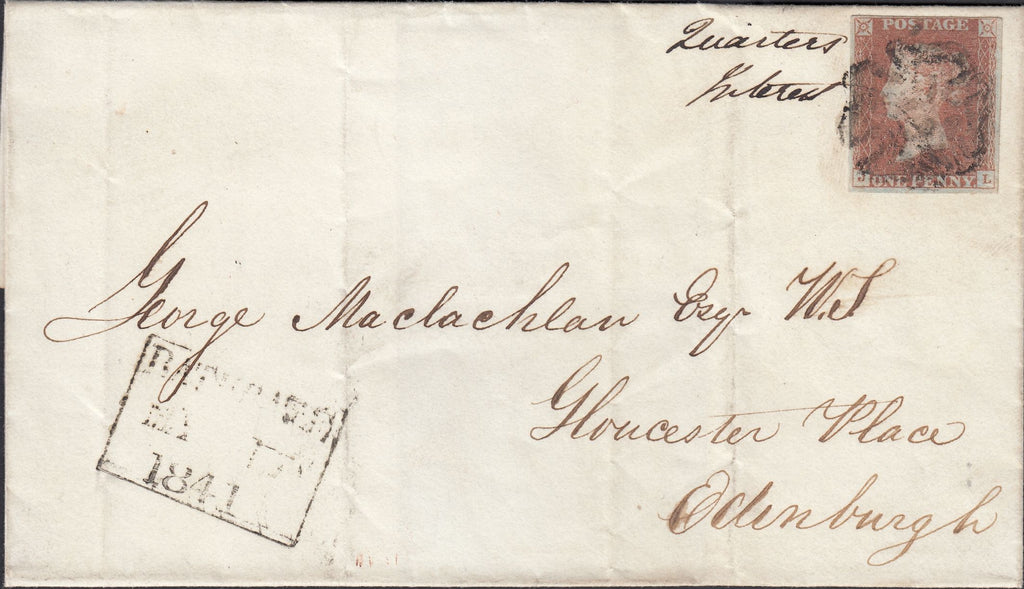 Quarters
Interest
POSTAGE
J ONE PENNY L
George Maclachlan Esqr W.S
Gloucester Place
Edinburgh
BATHGATE
MY 17
1841